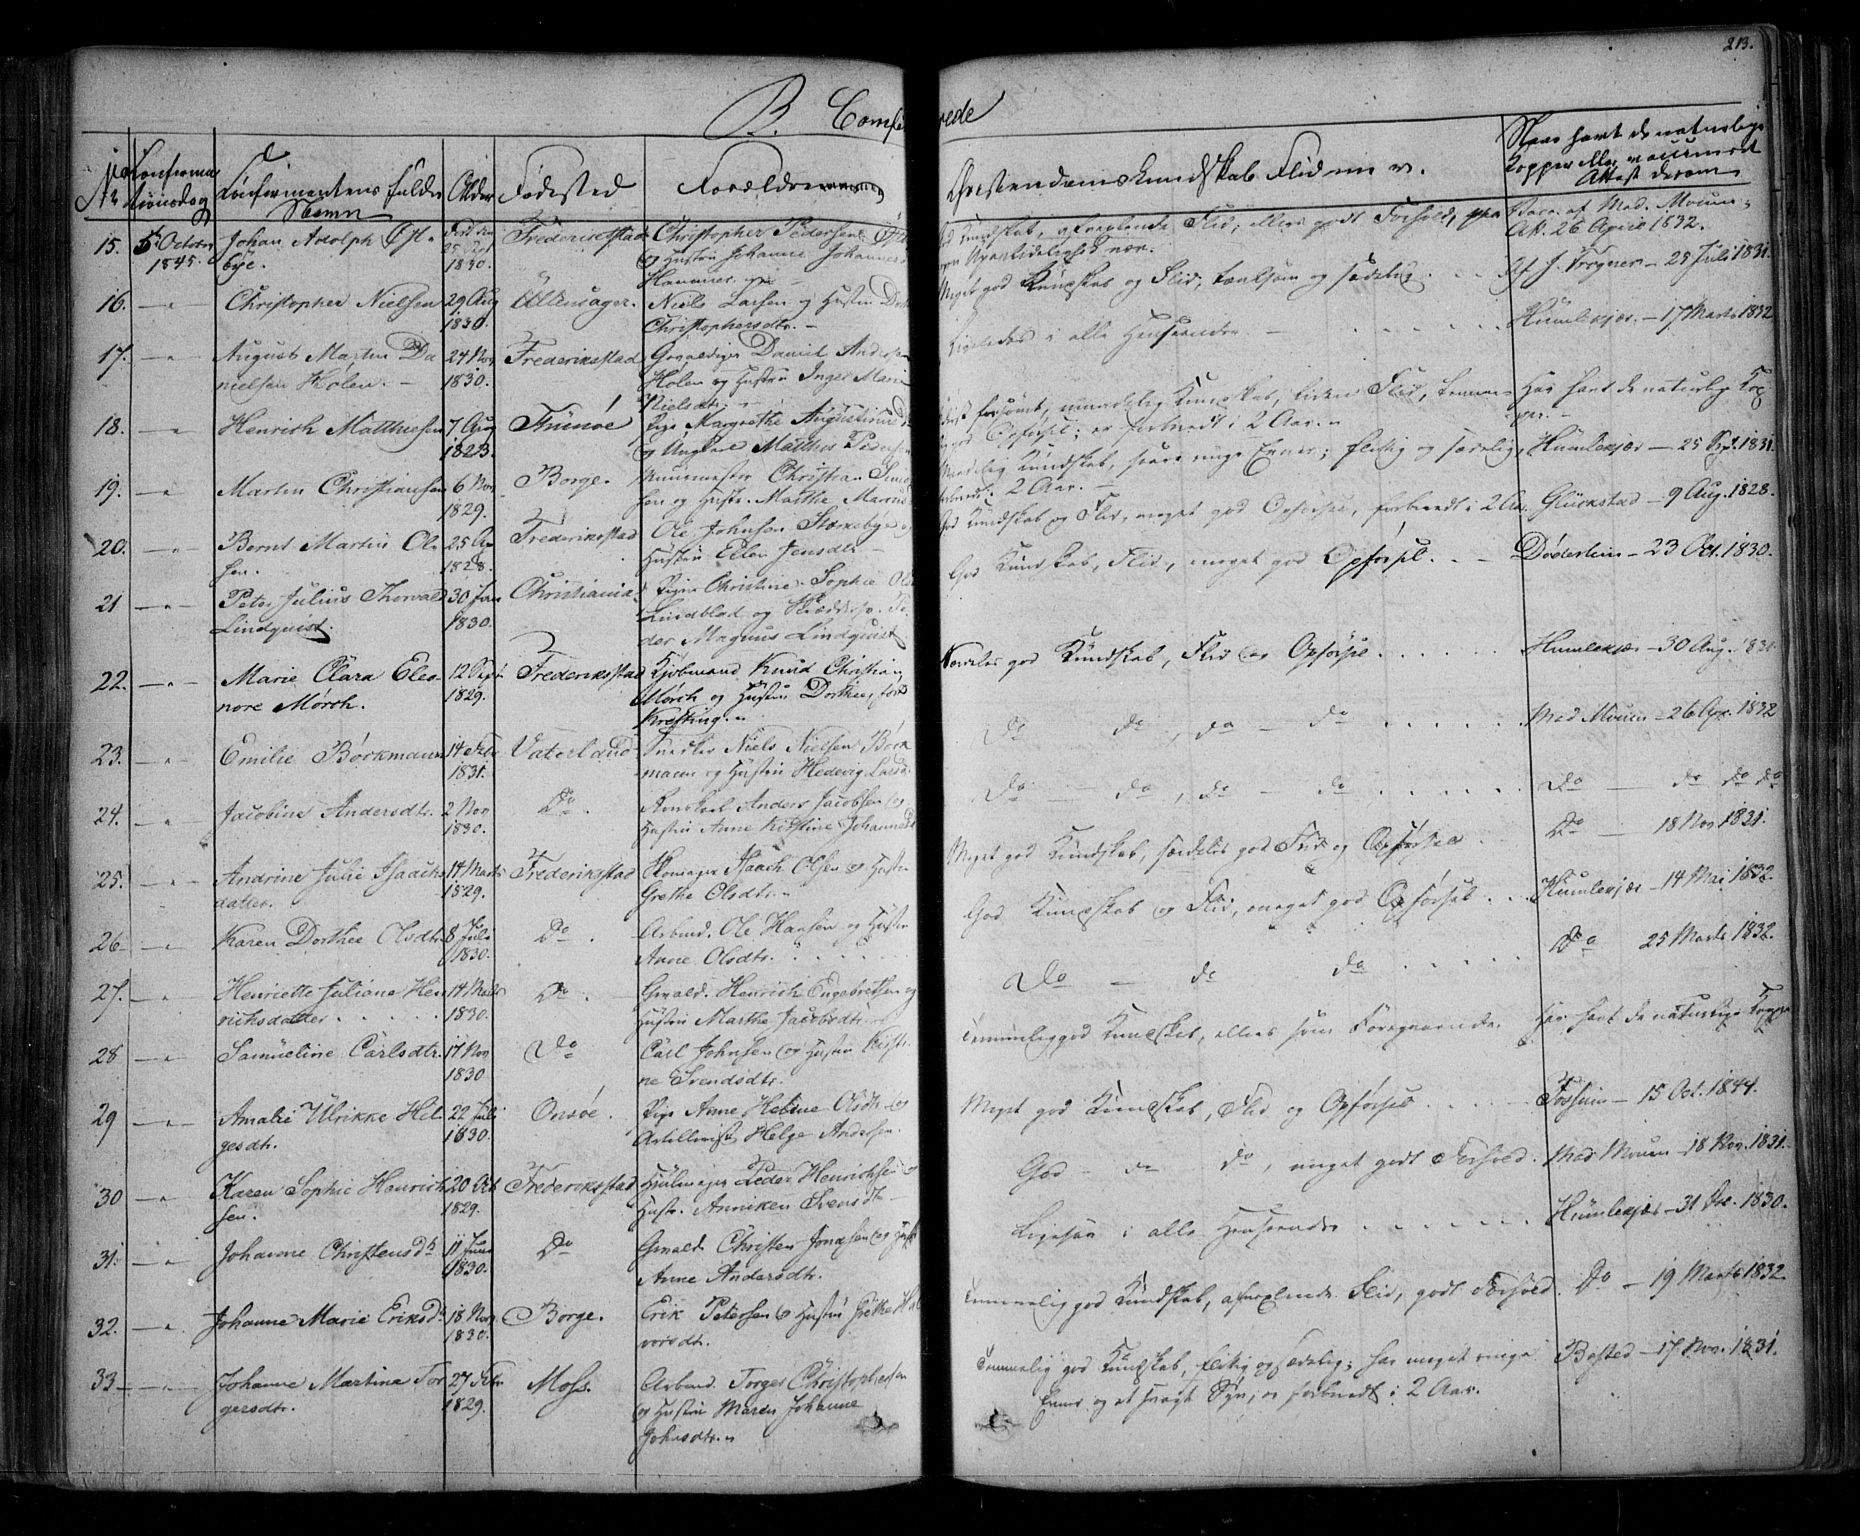 213.
B. Confi rede
No Confirmations dag
Confirmantens fulde Navn
Alder
Fødested
Forældre
Christendomskundskab Flid m. v.
Naar havt de naturlige Kopper eller vaccineret Attest derom
15. 5 October 1845. Johan Adolph Øst-
bye. 1830. Frederikstad Christopher Pedersen
og Hustru Johanne
Vacc. af Mad. Moum
26 April 1832.
16. — " Christopher Nielsen 29 Aug 1830. Niels Larsen og Hustru
Christophersdtr. —
Meget god Kundskab og Flid, tænksom og sædelig. 25 Juli 1831.
17. — " August Martin Da
nielsen Holen. — 24 Nov 1830. Frederikstad Gevaldiger Daniel Andersen
Holen og Hustru Inger Marie
Nielsdtr.
Ligeledes i alle Henseender — Humlekjær. — 17 Marts 1832
18. — " Henrich Matthiesen 7 Aug 1823. Pige Margrethe
og Ungkarl Matthis Pedersen
forsømt, maadelig Kundskab, liden Flid,
Opførsel; er forberedt i 2 Aar. "
Har havt de naturlig Kop
per. —
19. — " Martin Christiansen 6 Nov 1829. Borge. Christian
sen og Hustr. Marthe Marie
Maadelig Kundskab, svare ringe Evner; flittig og sædelig,
forberedt i 2 Aar. —
Humlekjær — 25 Sept. 1831.
20. — " Bernt Martin Ol
sen. 25 Ap 1828. Frederikstad Ole Johnsen
Hustru Ellen Jensdtr —
God Kundskab og Flid, meget god Opførsel, forberedt i 2 Aar. Glückstad — 9 Aug. 1828.
21 — " Peter Julius Thorvald
Lindquist. 30 Jan 1830. Christiania. Pige Christine Sophie
Lindblad og
der Magnus Lindquist
God Kundskab, Flid, meget god Opførsel. — Døderlein — 23 Oct. 1830.
22. — " Marie Clara Eleo
nore Mørch. 12 Sept 1829. Frederikstad Kjøbmand Knud Christian
Mørch og Hustru Dorthea, født
Kresting. "
Særdeles god Kundskab, Flid og Opførsel. Humlekjær — 30 Aug. 1831.
23. — " Emilie Børkmann 14 Feb 1831. Vaterland Snedker Niels Nielsen Børk
mann og Hustru Hedevig
Do do, do — do Mad Mouen — 26 Apr. 1832
24. — " Jacobine Andersdtr. 2 Nov 1830. Do. Anders Jacobsen og
Hustru Anne Kirstine
Do — do, do — do Do — do do do
25. — " Andrine Julie Isachs
datter. 14 Marts 1829. Frederikstad Skomager Isach Olsen og Hustr
Grethe Olsdtr. "
Meget god Kundskab, særdeles god Flid og Opførsel Do — 18 Nov 1831.
26 — " Karen Dorthee Olsdtr. 8 Juli 1830. Do. Arbeid. Ole Hansen og Hustru
Anne Olsdtr.
God Kundskab og Flid, meget god Opførsel. Humlekjær — 14 Mai 1832.
27. — " Henriette Juliane Hen
richsdatter 14 Marts 1830. Do. Gevald. Henrich Engebretsen og
Hustru Marthe Jacobsdtr.
Do — do do Do 25 Marts 1832.
28 — " Samueline Carlsdtr. 17 Nov 1830 Do Carl Johnsen og Hustru Kirsti
ne Svendsdtr.
Temmelig god Kundskab, ellers som Foregaaende. Har havt de naturlige Kopper
29 — " Amalie Ulrikke Hel
gesdtr. 22 Juli 1830. Onsøe. Pige Anne Helene Olsdtr og
Artillerist Helge Andersen.
Meget god Kundskab, Flid og Opførsel Fossum — 15 Oct. 1844.
30 — " Karen Sophie Henrich
sen. 20 Oct 1829. Frederikstad Hjulmager Peder Henrichsen
Hustr. Anniken Svendsdtr —
God — do do, meget godt Forhold. Mad Mouen — 18 Nov. 1831.
31. — " Johanne Christensdt 11 Juni 1830. Do Gevald. Christen Jonassen og Hustr
Anne Andersdtr.
Ligesaa i alle Henseender Humlekjær — 31 Dec. 1830.
32. — " Johanne Marie Eriksdt 18 Nov 1830. Borge. Erik Petersen og Hustru Grethe Hal
vorsdtr.
Temmelig god Kundskab, afvexlende Flid, godt Forhold. Do — 19 Marts 1832
33 — " Johanne Martine Tor
gersdtr. 27 Febr 1829. Moss. Arbeid. Torger Christophersen
og Hustru Maren Johanne
Johnsdtr. "
Temmelig god Kundskab, flittig og sædelig; har meget ringe
Evner og et svagt Syn, er forberedt i 2 Aar. Bested — 17 Nov. 1831.